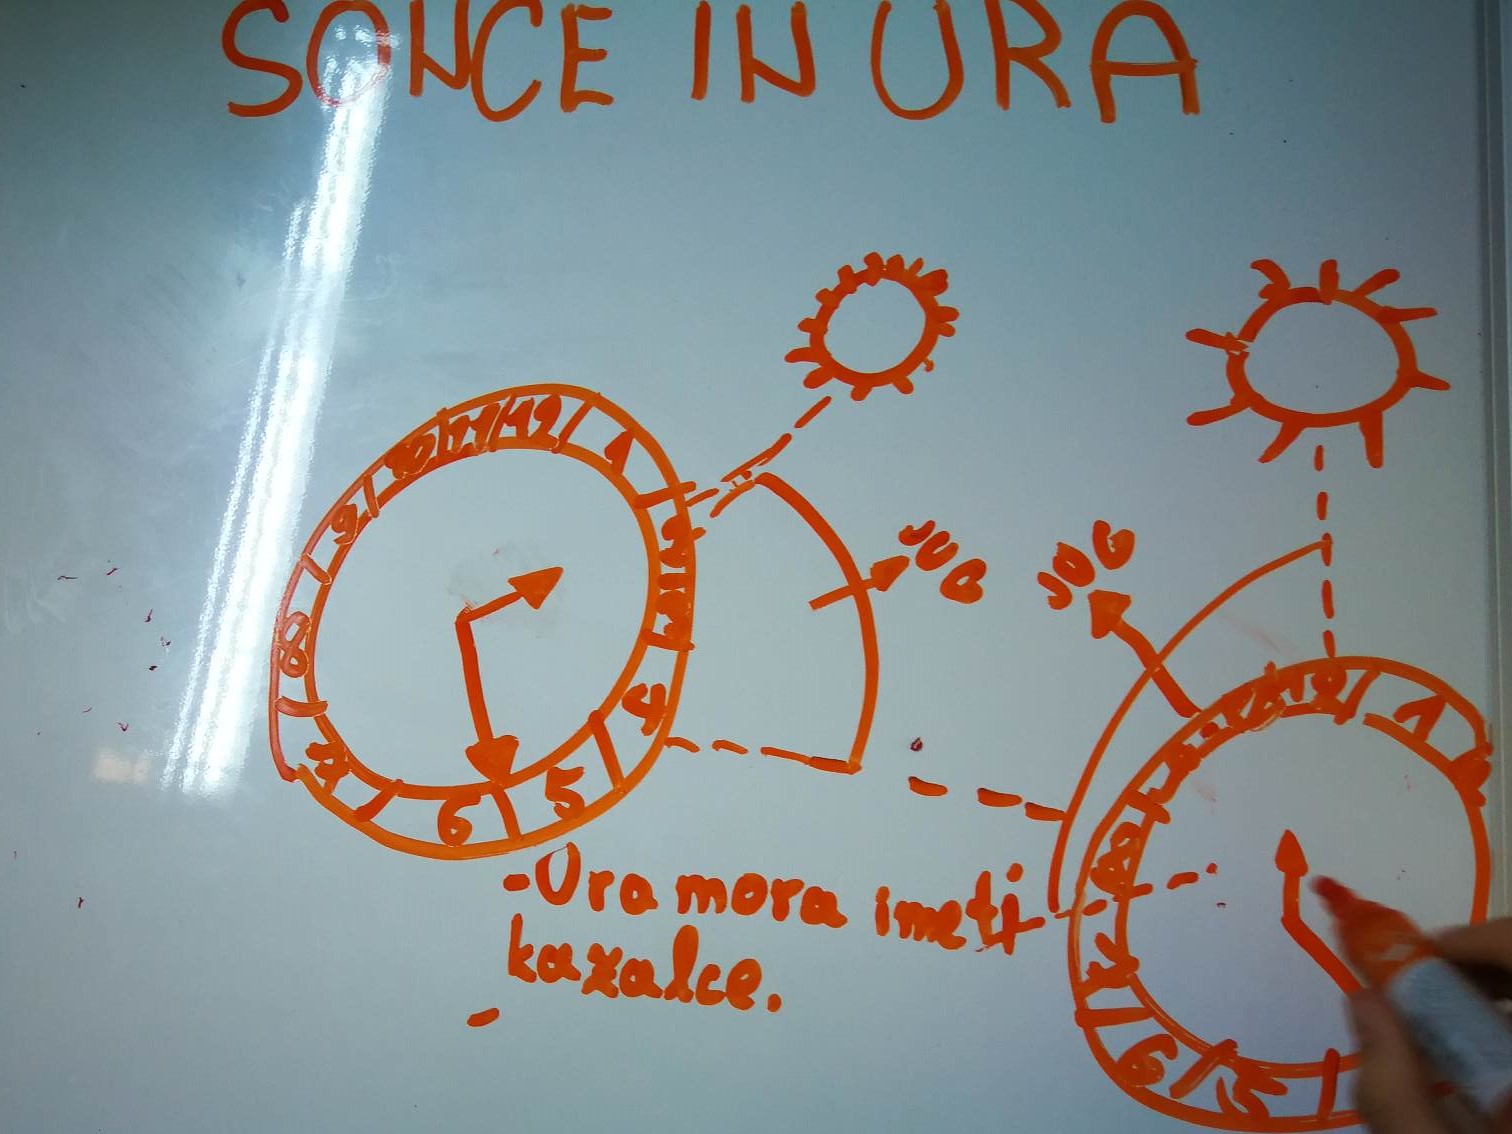 SONCE IN URA
12
11
10
1
9
8
4
7
6
5
JUG
JUG
1
8
7
6
5
-Ura mora imeti
kazalce.
-